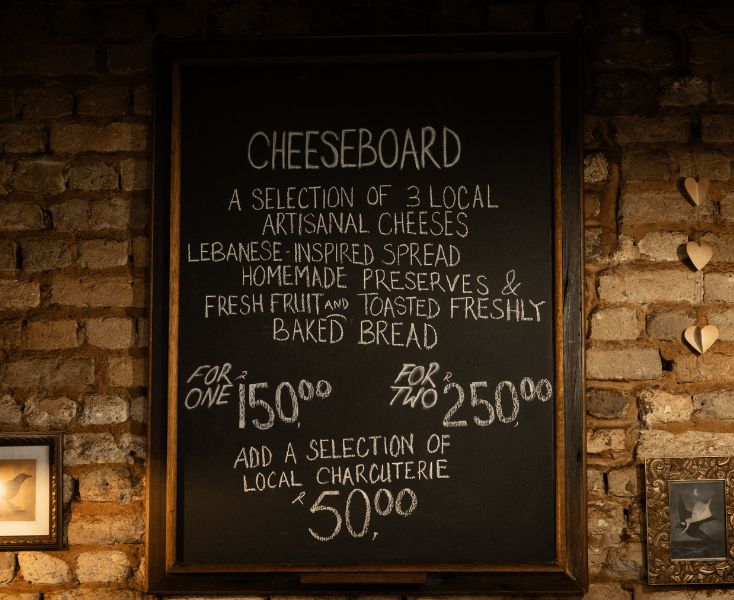 CHEESEBOARD
A SELECTION OF 3 LOCAL
ARTISANAL CHEESES
LEBANESE-INSPIRED SPREAD
HOMEMADE PRESERVES &
FRESH FRUIT AND TOASTED FRESHLY
BAKED BREAD
FOR ONE R150,00 FOR TWO R250,00
ADD A SELECTION OF
LOCAL CHARCUTERIE
R50,00